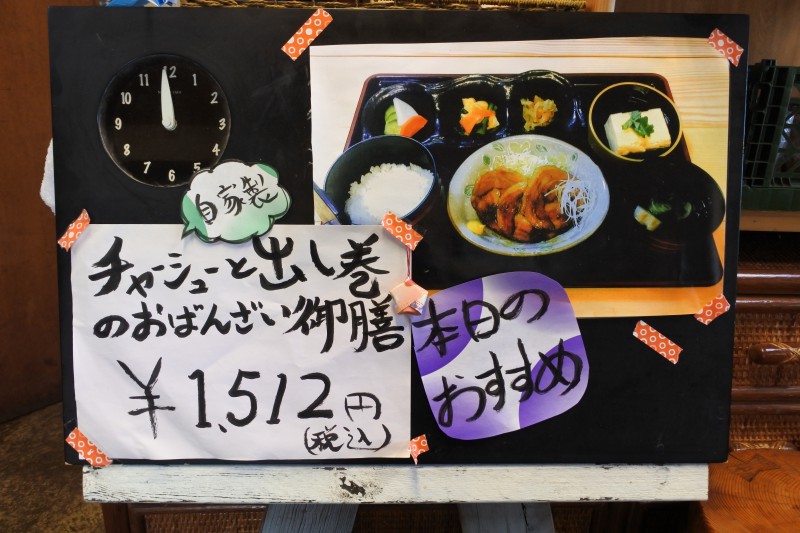 12
1
2
3
4
5
6
7
8
9
10
11
自家製
チャーシューと出し巻
のおばんざい御膳
¥1,512円
(税込)
本日の
おすすめ